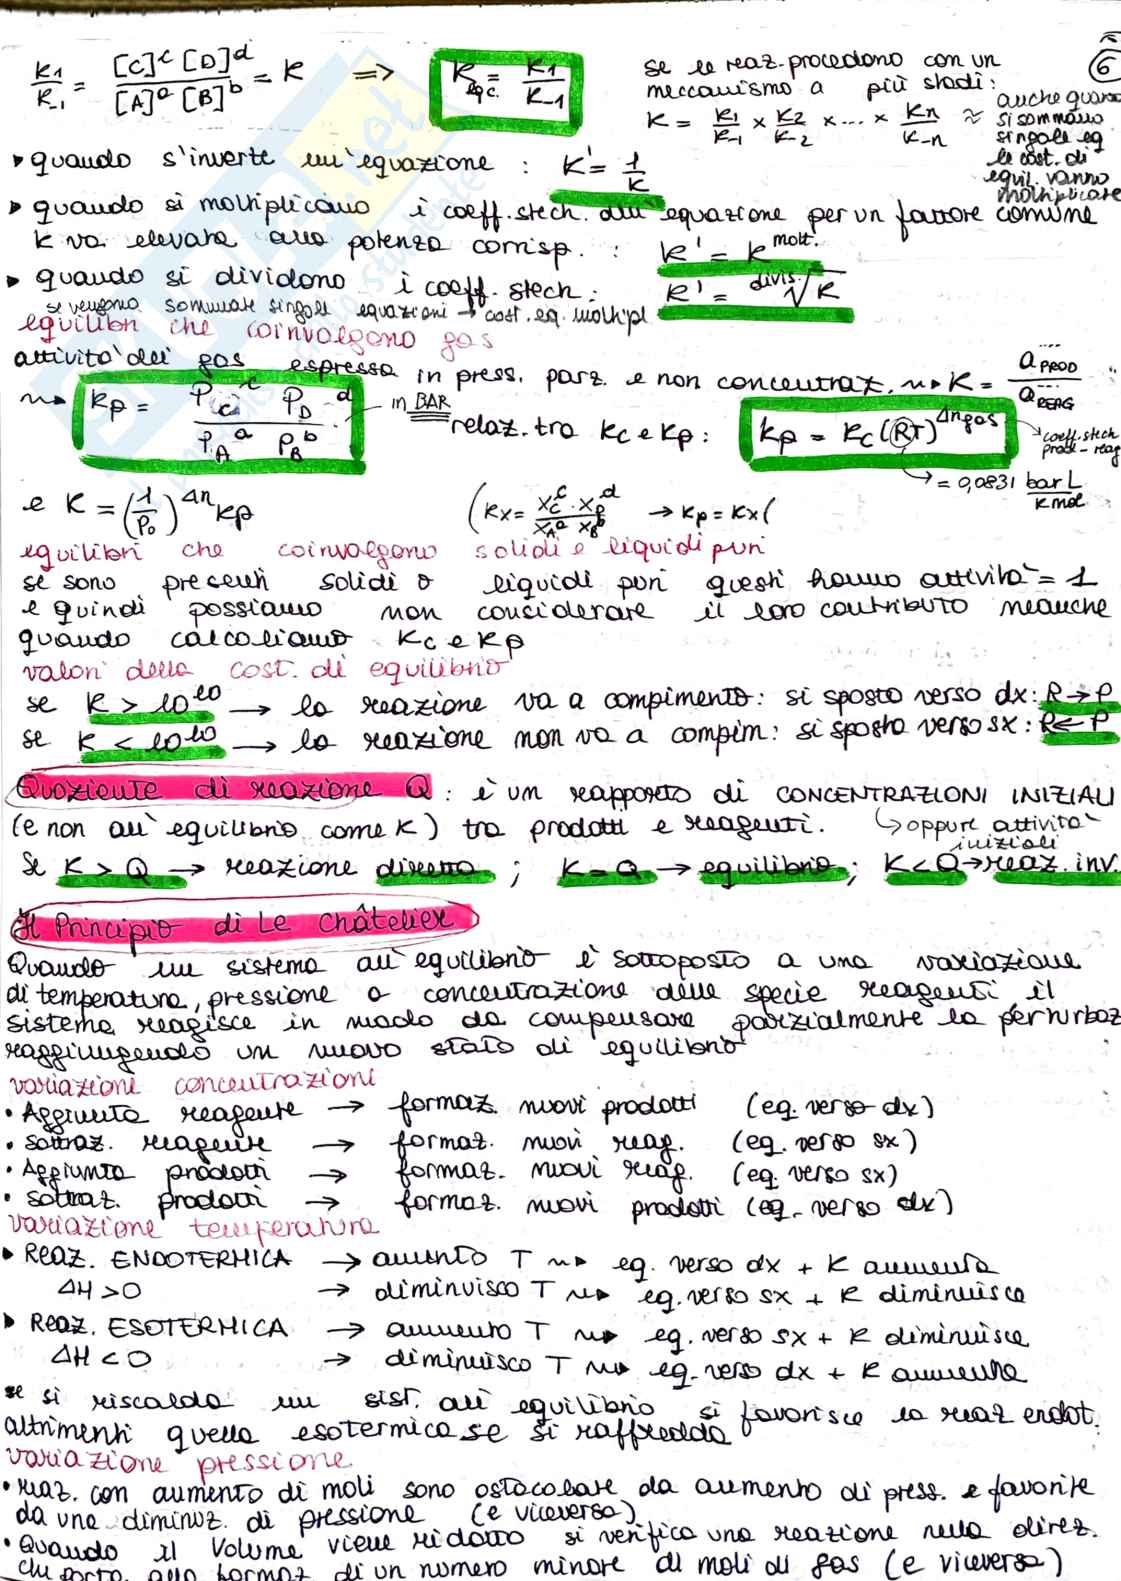 K1/K-1 = [C]^c [D]^d / [A]^a [B]^b = K => Keq c. = K1/K-1
6
se le reaz. procedono con un
meccanismo a più stadi:
K = K1/K-1 × K2/K-2 × ... × Kn/K-n ≈
anche quando
si sommano
singole eq
le cost. di
equil. vanno
moltiplicate
▸ quando s'inverte un'equazione : K' = 1/K
▸ quando si moltiplicano i coeff. stech. dell'equazione per un fattore comune
K va elevata alla potenza corrisp. : K' = K^molt.
▸ quando si dividono i coeff. stech: K' = divis.√K
se vengono sommate singole equazioni → cost. eq. moltipl
equilibri che coinvolgono gas
attività dei gas espressa in press. parz. e non concentraz. ⇝ K = a PROD / a REAG
⇝ Kp = P_C^c P_D^d / P_A^a P_B^b · in BAR
relaz. tra Kc e Kp: Kp = Kc (RT)^Δngas
coeff. stech
prod - reag
= 0,0831 bar L / K mol
e K = (1/P0)^Δn Kp (Kx = Xc^c · XD^d / XA^a XB^b → Kp = Kx (
equilibri che coinvolgono solidi e liquidi puri
se sono presenti solidi o liquidi puri questi hanno attività = 1
e quindi possiamo non considerare il loro contributo neanche
quando calcoliamo Kc e Kp
valori della cost. di equilibrio
se K > 10^10 → la reazione va a compimento: si sposta verso dx: R → P
se K < 10^10 → la reazione non va a compim: si sposta verso sx: R ← P
Quoziente di reazione Q : è un rapporto di CONCENTRAZIONI INIZIALI
(e non all'equilibrio come K) tra prodotti e reagenti.
↳ oppure attività
iniziali
Se K > Q → reazione diretta ; K = Q → equilibrio ; K < Q → reaz. inv.
Il Principio di Le Châtelier
Quando un sistema all'equilibrio è sottoposto a una variazione
di temperatura, pressione o concentrazione delle specie reagenti il
sistema reagisce in modo da compensare parzialmente la perturbaz
raggiungendo un nuovo stato di equilibrio
variazioni concentrazioni
• Aggiunta reagente → formaz. nuovi prodotti (eq. verso dx)
• sottraz. reagente → formaz. nuovi reag. (eq. verso sx)
• Aggiunta prodotti → formaz. nuovi reag. (eq. verso sx)
• sottraz. prodotti → formaz. nuovi prodotti (eq. verso dx)
variazione temperatura
▸ Reaz. ENDOTERMICA → aumento T ⇝ eq. verso dx + K aumenta
ΔH > 0 → diminuisco T ⇝ eq. verso sx + K diminuisce
▸ Reaz. ESOTERMICA → aumento T ⇝ eq. verso sx + K diminuisce
ΔH < 0 → diminuisco T ⇝ eq. verso dx + K aumenta
se si riscalda un sist. all'equilibrio si favorisce la reaz endot.
altrimenti quella esotermica se si raffredda
variazione pressione
• reaz. con aumento di moli sono ostacolate da aumento di press. e favorite
da una diminuz. di pressione (e viceversa)
• Quando il Volume viene ridotto si verifica una reazione nella direz.
che porta alla formaz di un numero minore di moli di gas (e viceversa)